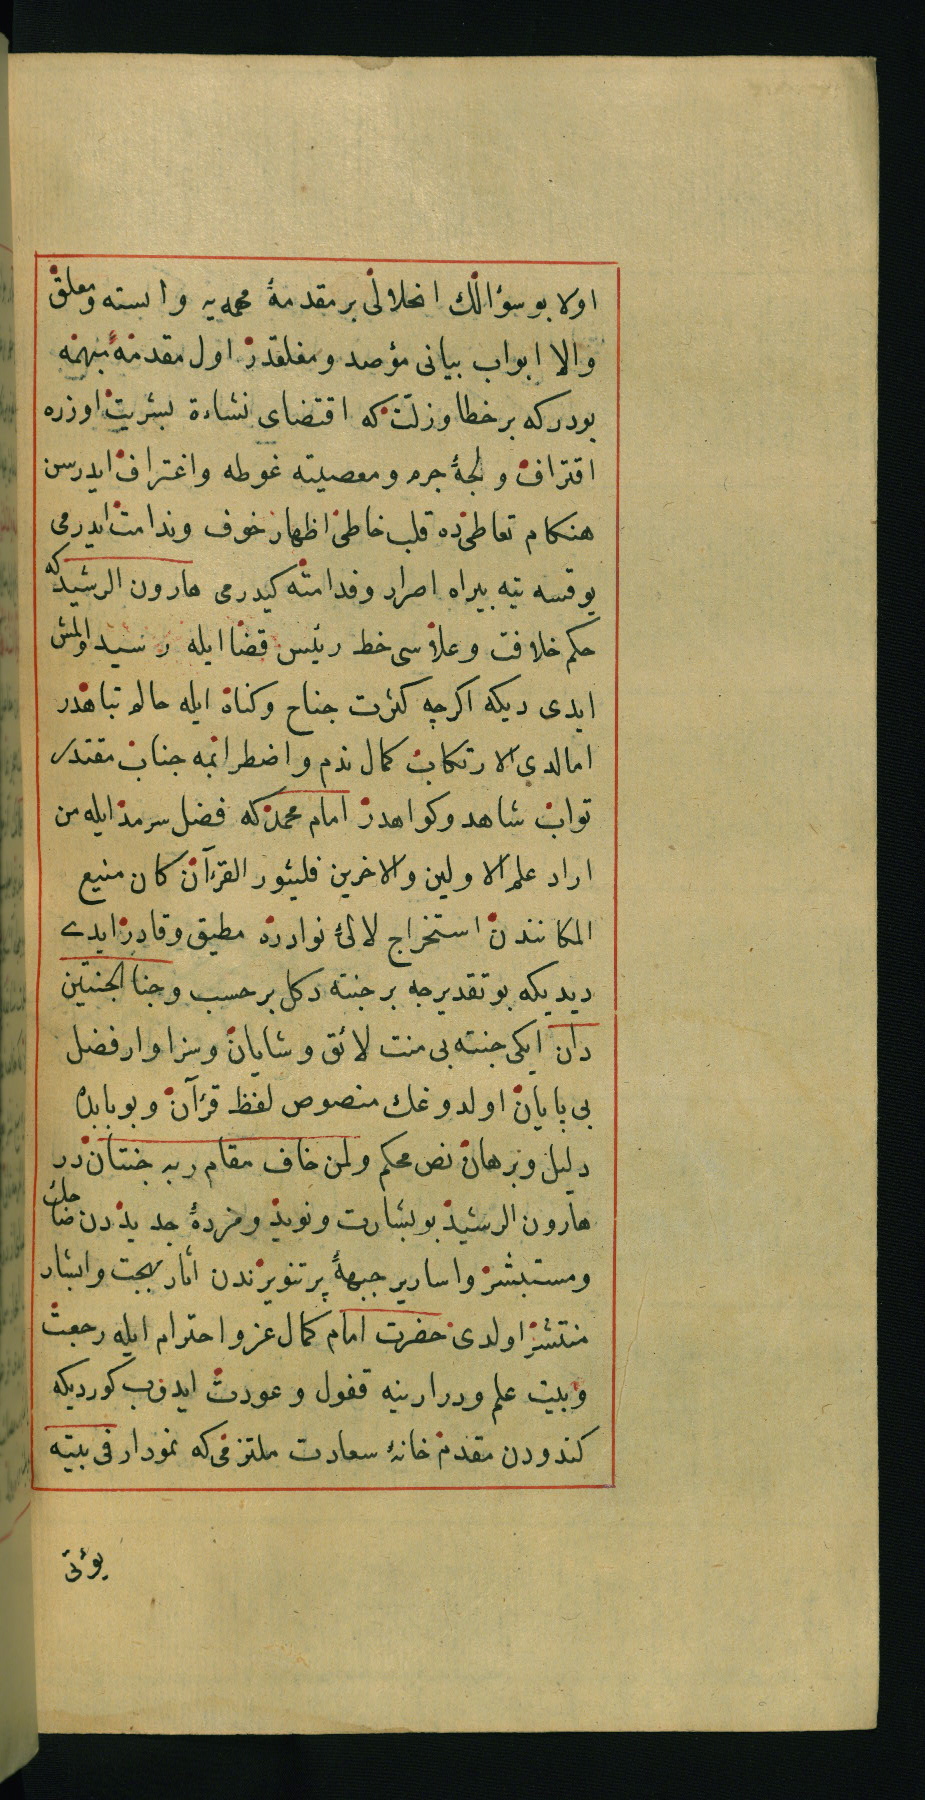 اولا بو سؤالڭ انحلالی بر مقدمهٔ ممهدیه وابسته ومعلق
والا ابواب بیانی مؤصد ومغلقدر اول مقدمهٔ مبهمه
بودر که بر خطا وزلت که اقتضای نشاءة بشریت اوزره
اقتراف و لجهٔ جرم ومعصیته غوطه واغتراف ایدرسن
هنکام تعاطیده قلب خاطئ اظهار خوف وندامت ایدرمی
یوقسه تیه بیراه اصرار وفدامته کیدرمی هارون الرشید که
حکم خلافت وعلاسی خط رئیس قضا ایله رسیدا ولمش
ایدی دیکه اکرچه کثرت جناح وکناه ایله حالم تباهدر
اما لدی الارتکاب کمال ندم واضطرابمه جناب مقتدر
تواب شاهد وکواهدر امام محمد که فضل سرمد ایله من
اراد علم الاولین والاخرین فلیثور القرءآن کان منیع
المکانندن استخراج لالئ نوادره مطیق وقادر ایدی
دیدیکه بو تقدیرجه بر جنته دکل بر حسب وجنا الجنتین
دان ایکی جنته بی منت لائق وشایان وسزاوار فضل
بی پایان اولدوغك منصوص لفظ قرءآن وبو بابده
دلیل وبرهان نص محکم ولمن خاف مقام ربه جنتان در
هارون الرشید بو بشارت ونوید ومژدهٔ جدیددن ضاحك
ومستبشر واساریر جبههٔ پر تنویرندن اثار بهجت وابشار
منتشر اولدی حضرت امام کمال عز واحترام ایله رجعت
وبیت علم ودرارینه قفول وعودت ایدوب کوردیکه
کندودن مقدم خانهٔ سعادت ملتزمی که نمودار فی بیته
یؤتی